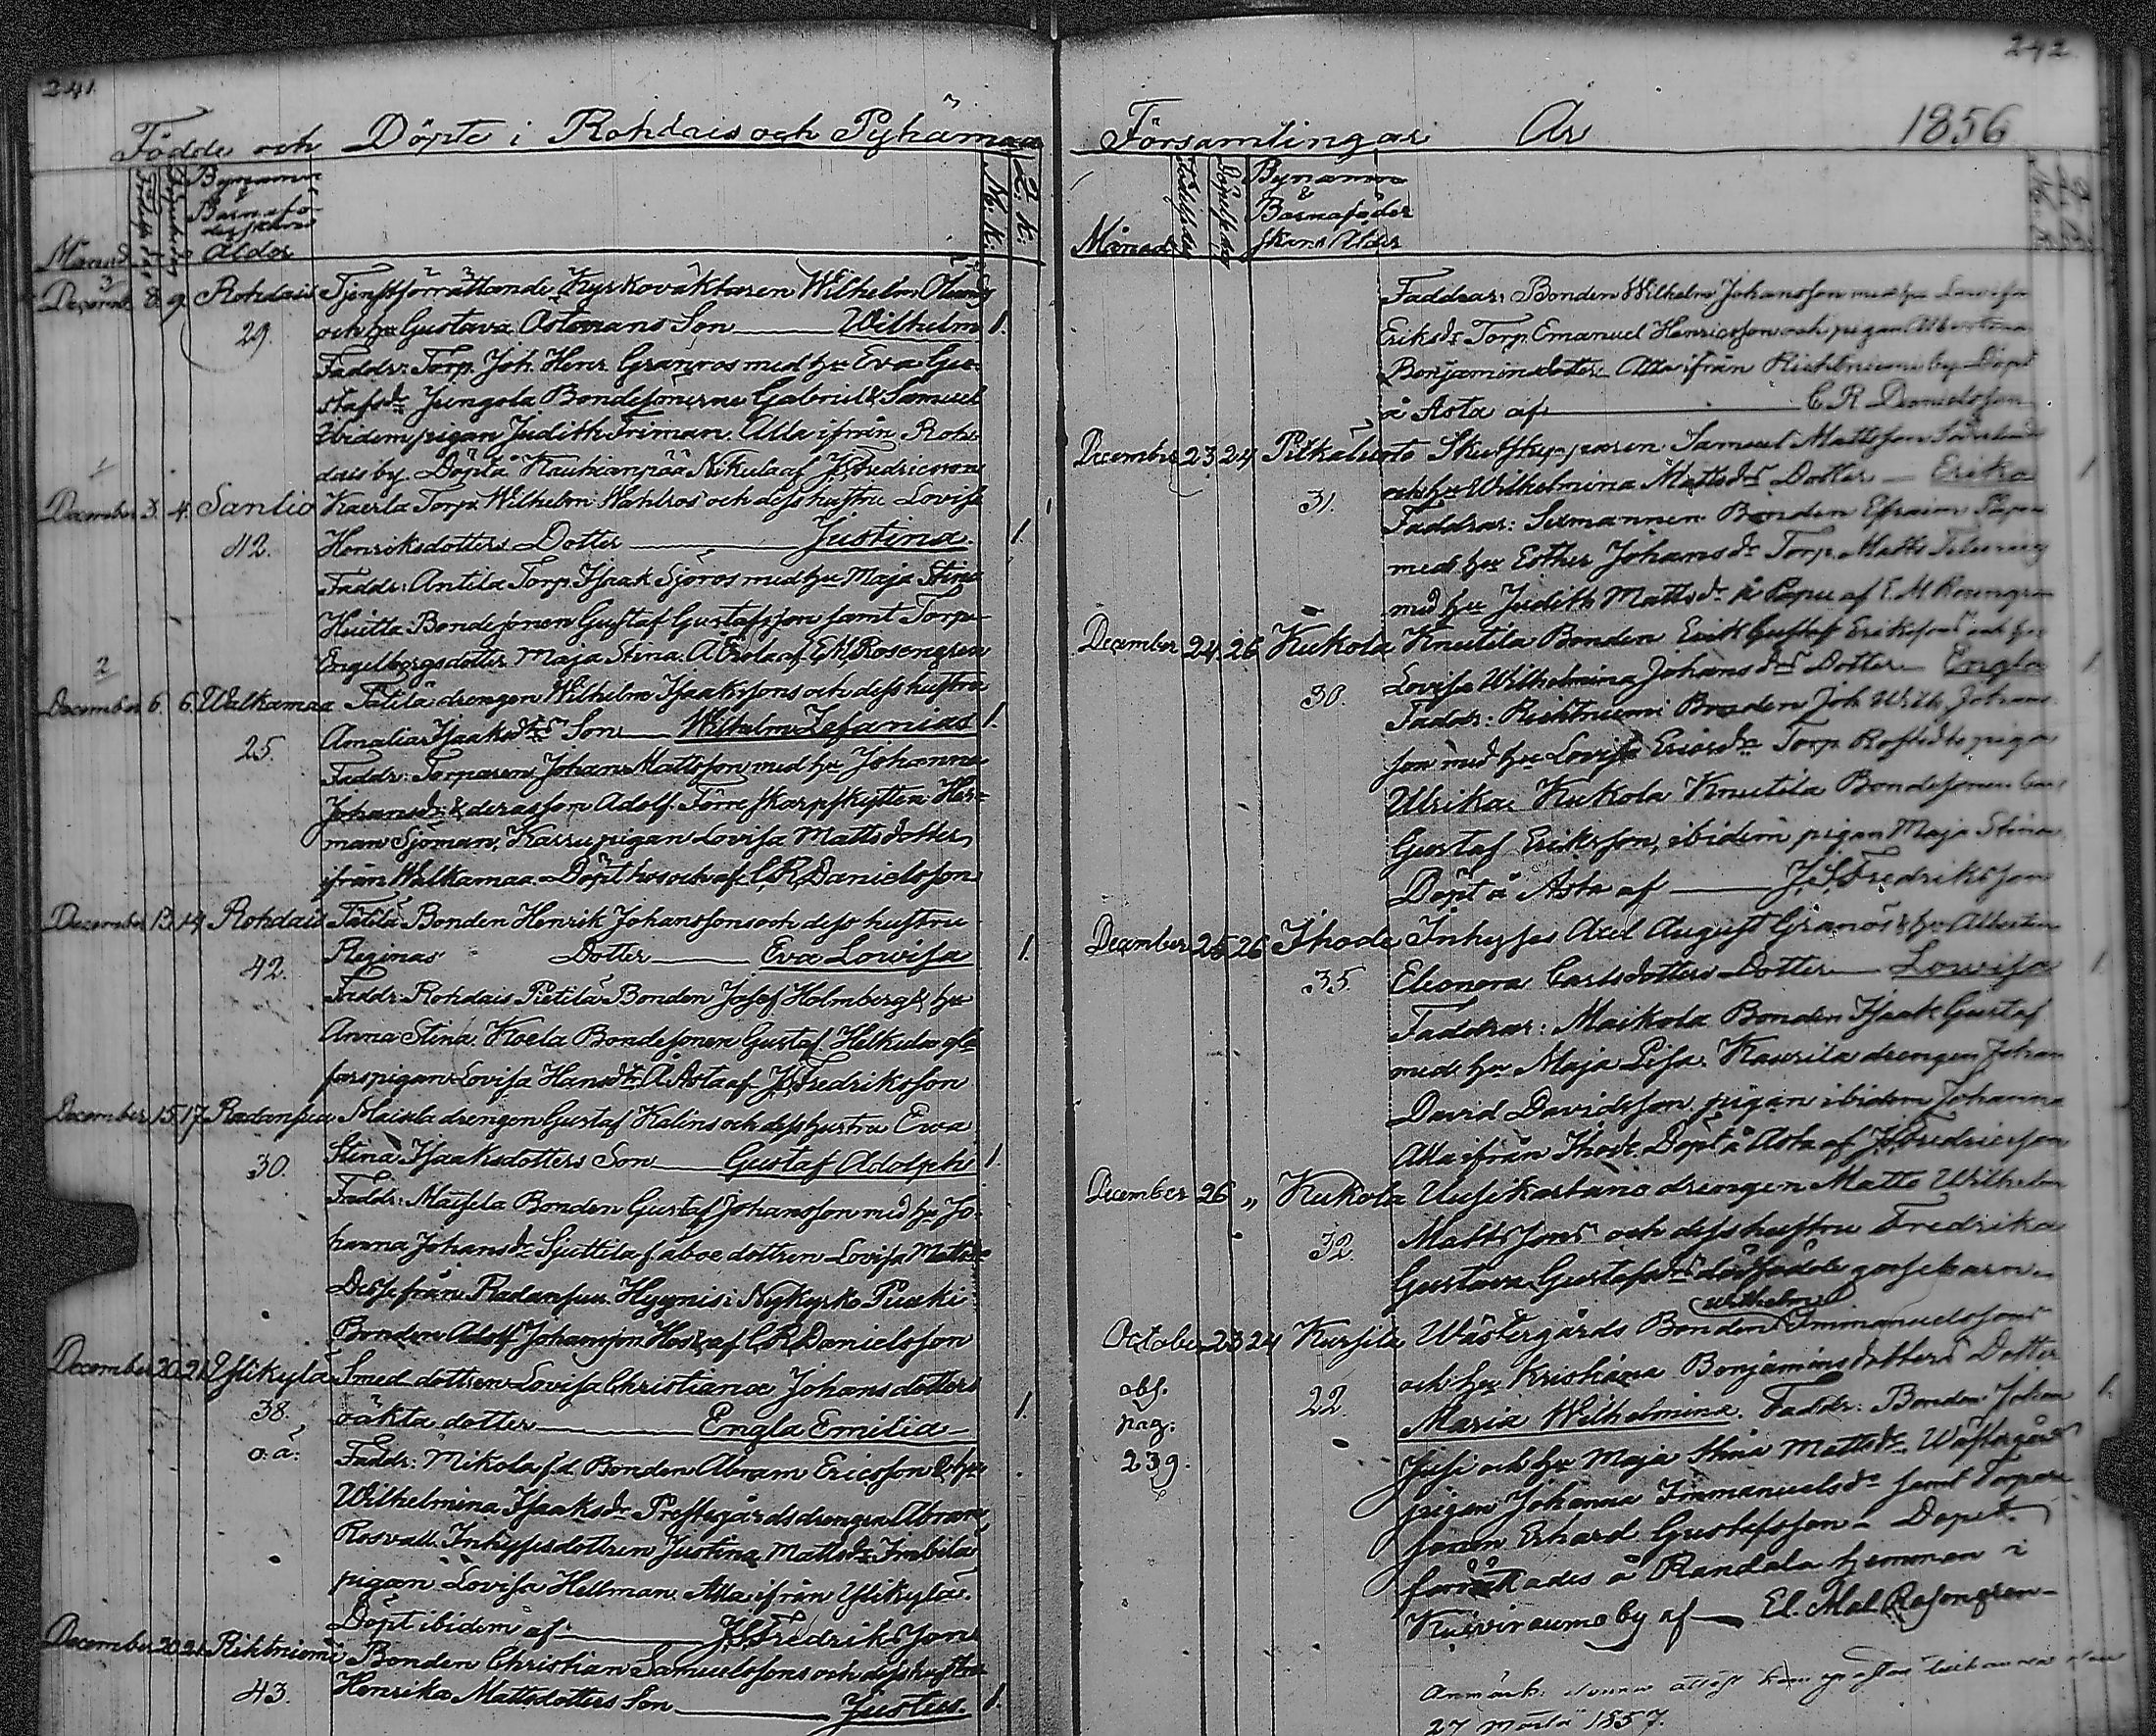 241.
Födde och Döpte i Rohdais och Pyhämaa
Månad
Födelse dag
Byanamn
&
Barnafö-
derskans
Ålder
M. K.
Q. K.
3
December 8. 9. Rohdais Tjenstförrättande Kyrkoväktaren Wilhelm
29. och hu Gustava Östmans Son Wilhelm 1.
Faddr: Torp. Joh. Henr. Granros med hu Eva Gu-
stafsdr Jungola Bondesönerne Gabriel & Samuel
Ibidem pigan Judith Friman. Alla ifrån Roh-
dais by. Döpt å Kauhianpää Nikula af J. S. Fredricsson
1
December 3. 4. Santio Kaerla Torp. Wilhelm Wahlros och dess hustru Lovisa
42. Henriksdotters Dotter Justina. 1.
Faddr: Antila Torp. Isaak Sjöros med hu Maja Stina
Heitta Bondesonen Gustaf Gustafsson samt Torp.
Engelbergsdotter Maja Stina. Å af E. M. Rosengren
2
December 6. 6. Walkamaa Tätilä drengen Wilhelm Isaakssons och dess hustru
25. Amalia Isaaksdrs Son Wilhelm Zefanias 1.
Faddr: Torparen Johan Mattsson med hu Johanna
Johansdr & deras son Adolf. Förre skarpskytten Her-
man Sjöman, Karru pigan Lovisa Mattsdotter
ifrån Walkamaa. Döpt hos och af C. R. Danielsson
December 13. 14. Rohdais Tätilä Bonden Henrik Johanssons och dess hustru
42. Reginas Dotter Eva Lowisa 1.
Faddr: Rohdais Pietilä Bonden Josef Holmberg & hu
Anna Stina. Koela Bondesonen Gustaf. Helkula
pigan Lovisa Hansdtr. Å Asta af J. S. Fredriksson
December 15 17 Radansuu Maisela drengen Gustaf Kalins och dess hustru Ewa
30. Stina Isaaksdotters Son Gustaf Adolph 1.
Faddr: Maisela Bonden Gustaf Johansson med hu Jo-
hanna Johansdr Sjuttila dottren Lovisa Mattsdr
Desse från Radansuu. Hyynis i Nykyrko Puaki
Bonden Adolf Johansson. Hos & af C. R. Danielsson
December 20. 21. Ylikylä Smed dottren Lovisa Christiana Johansdotters
38. oäkta dotter Engla Emilia 1.
o. ä. Faddr: Mikola f.d. Bonden Abram Ericsson & hu
Wilhelmina Isaaksdr Prestegårds drengen Abram
Rosvall. Inhysesdottren Justina Mattsdr Imbilä
pigan Lovisa Hellman. Alla ifrån Ylikylä.
Döpt ibidem af J. S. Fredriksson
December 20. 21. Riktniemi Bonden Christian Samuelssons och dess hustru
43. Henrika Mattsdotters Son Justus. 1.
242.
Församlingar År 1856
Månad
Födelse dag
Döpelse dag
Byanamn
&
Barnaföder
skans Ålder
M. K.
Q. K.
Faddrar: Bonden Wilhelm Johansson med hu Lowisa
Eriksdr Torp. Emanuel Henricsson och pigan Albertina
Benjaminsdotter. Alla ifrån Riektniemi by. Döpt
å Asta af C. R. Danielsson
December 23. 24 Pitkäluoto Skutskepparen Samuel Mattsson
31. och hu Wilhelmina Mattsdrs Dotter Erika 1
Faddrar: Bonden Efraim
med hu Esther Johansdr Torp. Matts
med hu Judith Mattsdr å af E. M. Rosengren
December 24. 26 Kukola Knutila Bonden Erik Gustaf Erikssons och hu
30. Lovisa Wilhelmina Johansdrs Dotter Engla 1
Faddr: Riektniemi Bonden Joh. Wilh. Johans-
son med hu Lovisa Ericsdr Torp. pigan
Ulrika. Kukola Knutila Bondesonen
Gustaf Eriksson, ibidem pigan Maja Stina
Döpt å Asta af J. S. Fredriksson
December 25 26 Ihode Inhyses Axel August Granös & hu Albertina
35. Eleonora Carlsdotters Dotter Lowisa 1.
Faddrar: Maikola Bonden Isaak Gustaf
med hu Maja Lisa. Kaurila drengen Johan
David Davidsson. pigan ibidem Johanna
Alla ifrån Ihode. Döpt å Asta af J. S. Fredricsson
December 26 " Kukola Uusikartano drengen Matts Wilhelm
32. Mattssons och dess hustru Fredrika
Gustava Gustafsdrs dödfödde gossebarn
Wilhelm
October 23 24 Kursila Wästergårds Bonden Immanuelssons
obs. 22. och hu Kristiana Benjaminsdotters Dotter
pag. Maria Wilhelmina. Faddr: Bonden Johan 1.
239. och hu Maja Stina Mattsdr. Wästergårds
pigan Johanna Immanuelsdr samt Torpare
sonen Erhard Gustafsson. Dopet
förrättades å Randala hemman i
Kuivirauma by af El. Mal. Rosengren
Anmärk. denna attest
27 Martii 1857.